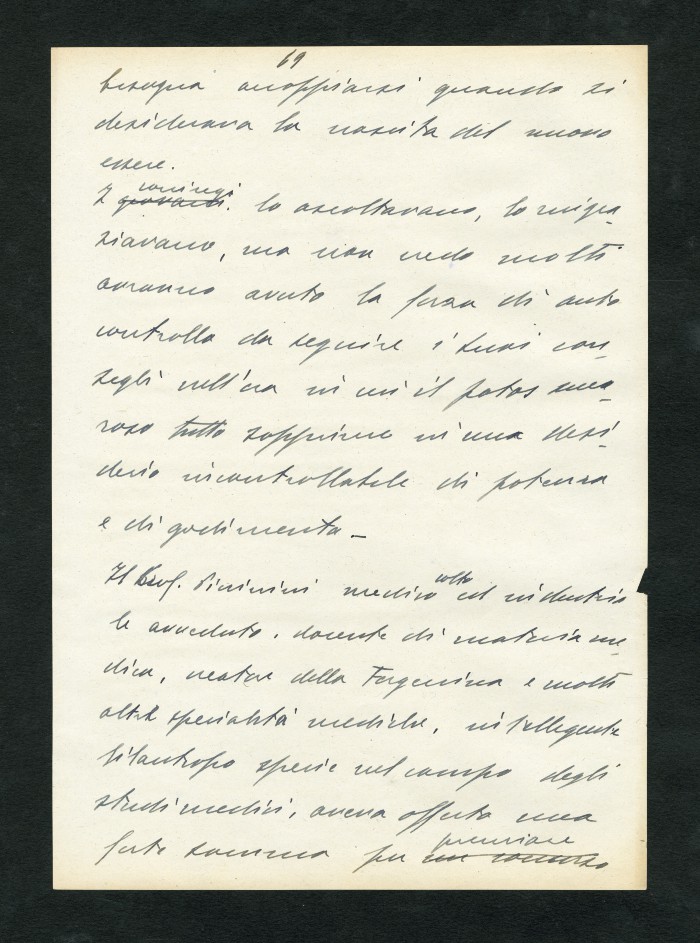 69
bisogna accoppiarsi quando si
desiderava la nascita del nuovo
essere.
coniugi
I giovani lo ascoltavano, lo ringra-
ziavano, ma non credo molti
avranno avuto la forza di auto
controllo da seguire i suoi con-
segli nell'ora in cui il
tutto sopprime in un desi-
derio incontrollabile di potenza
e di godimento -
Il Prof. medico colto ed industria
le avveduto, docente di materia me-
dica, creatore della e molti
altre specialità mediche, intelligente
filantropo specie nel campo degli
studi medici, aveva offerto una
forte somma per premiare
un concorso